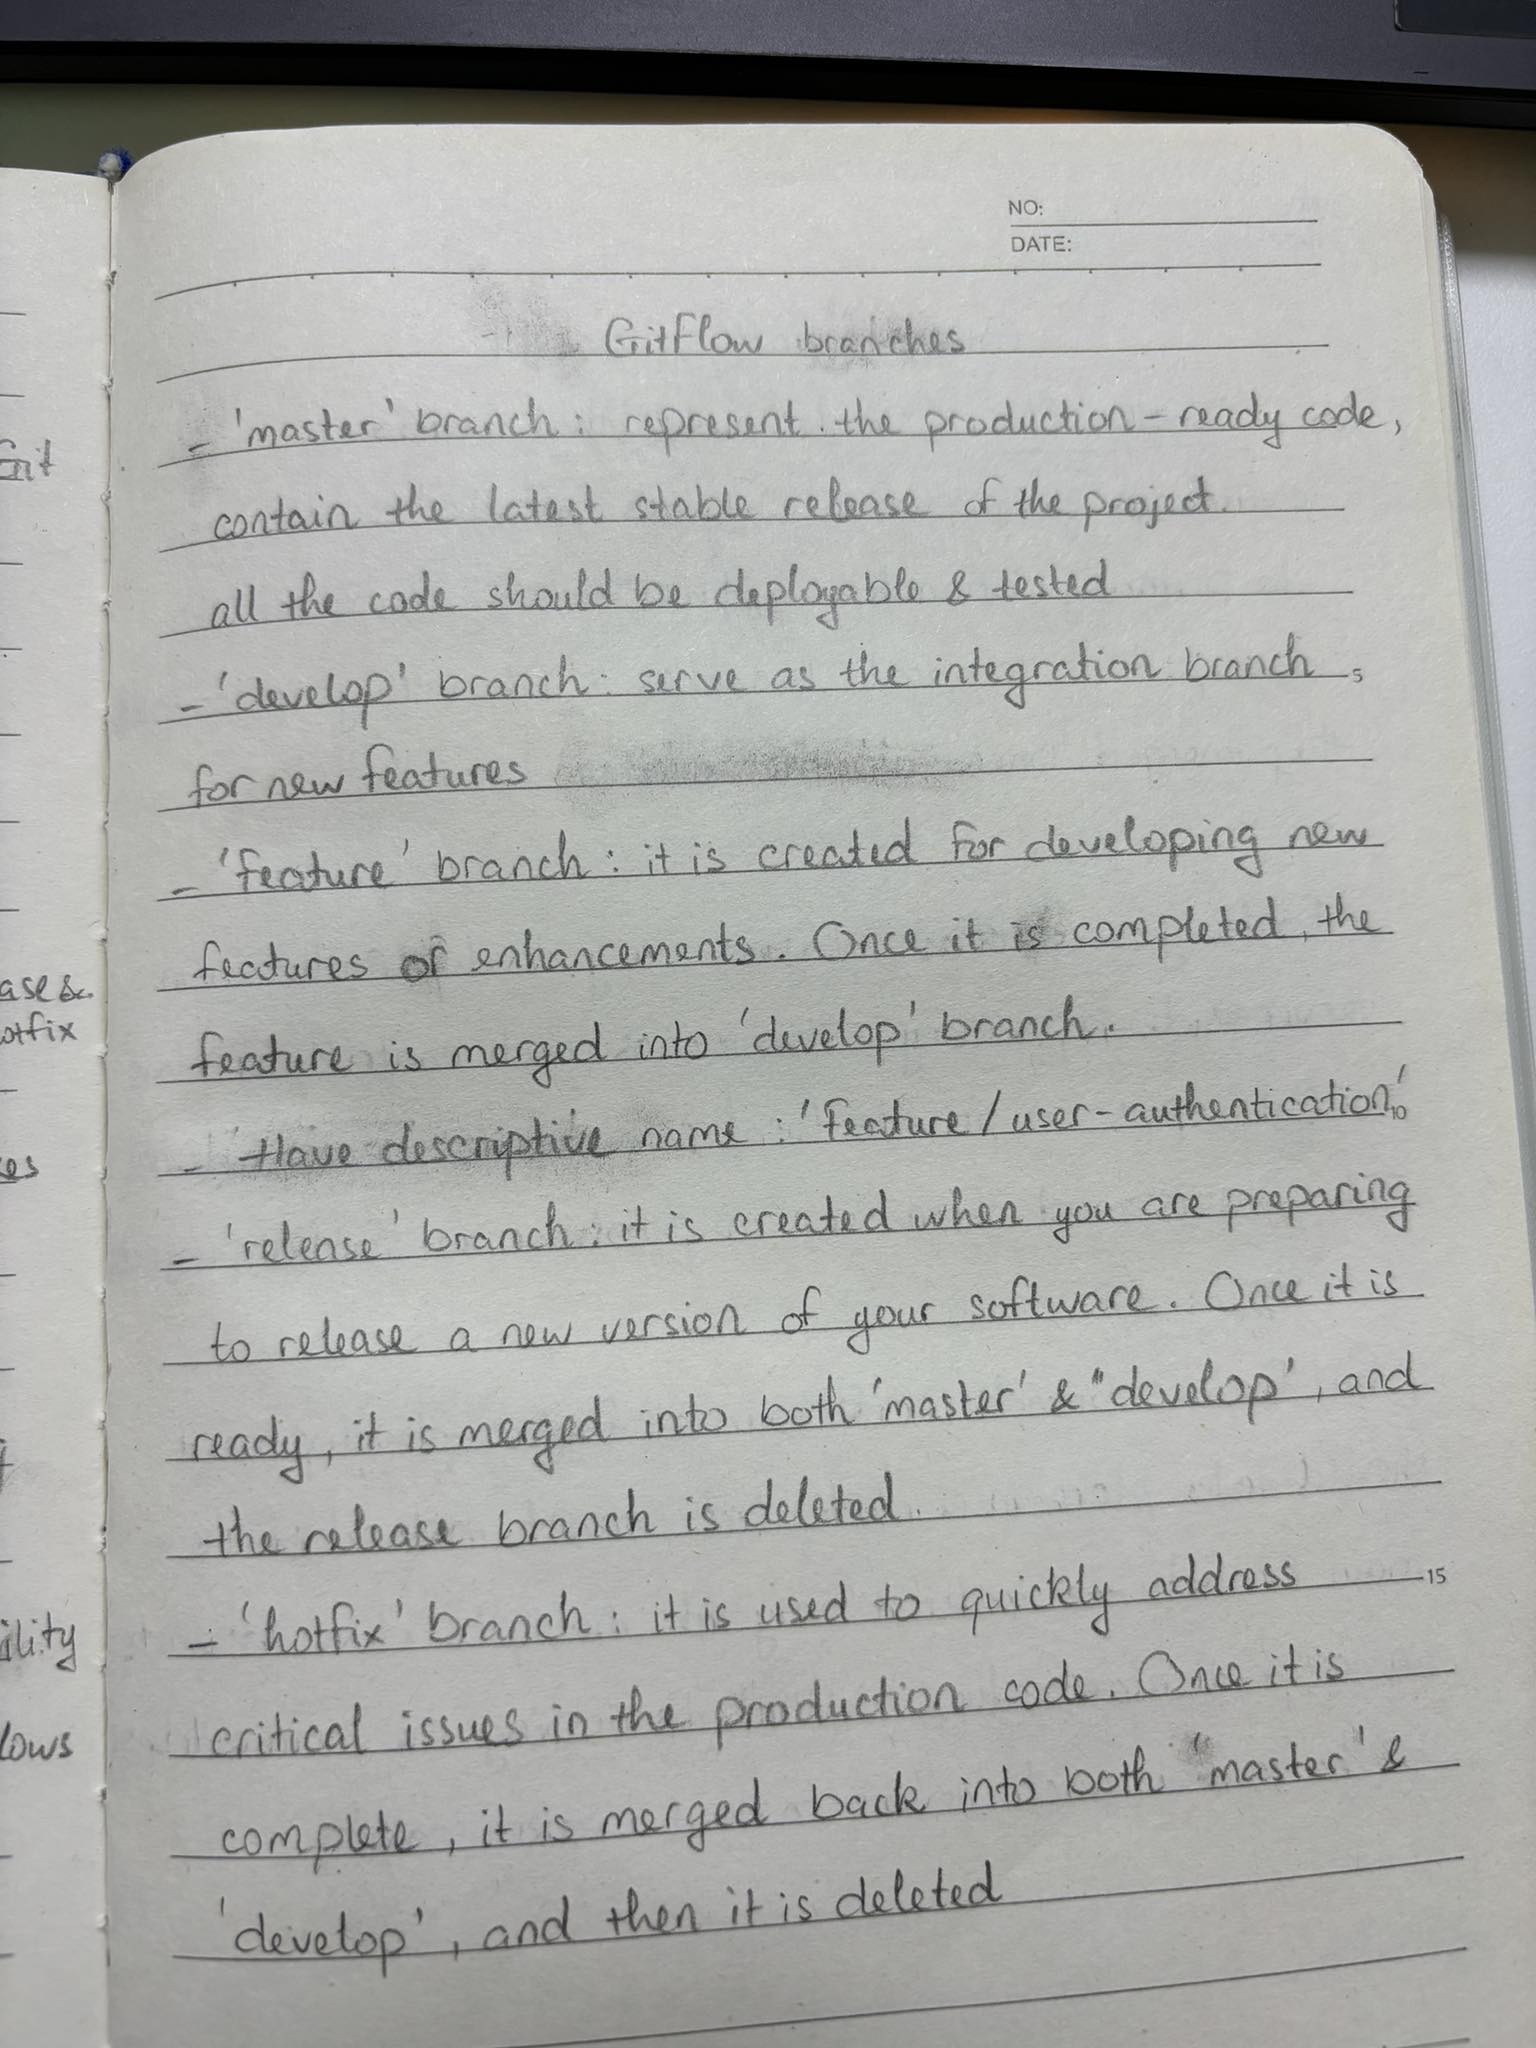 NO:
DATE:
GitFlow branches
- 'master' branch : represent the production - ready code,
contain the latest stable release of the project.
all the code should be deployable & tested
- 'develop' branch : serve as the integration branch
5
for new features
- 'feature' branch : it is created for developing new
features or enhancements. Once it is completed, the
feature is merged into 'develop' branch.
- Have descriptive name : 'feature / user - authentication'
10
- 'release' branch : it is created when you are preparing
to release a new version of your software. Once it is
ready, it is merged into both 'master' & "develop', and
the release branch is deleted.
- 'hotfix' branch : it is used to quickly address
15
critical issues in the production code. Once it is
complete, it is merged back into both 'master' &
'develop', and then it is deleted
Git
ase &
otfix
es
ility
lows